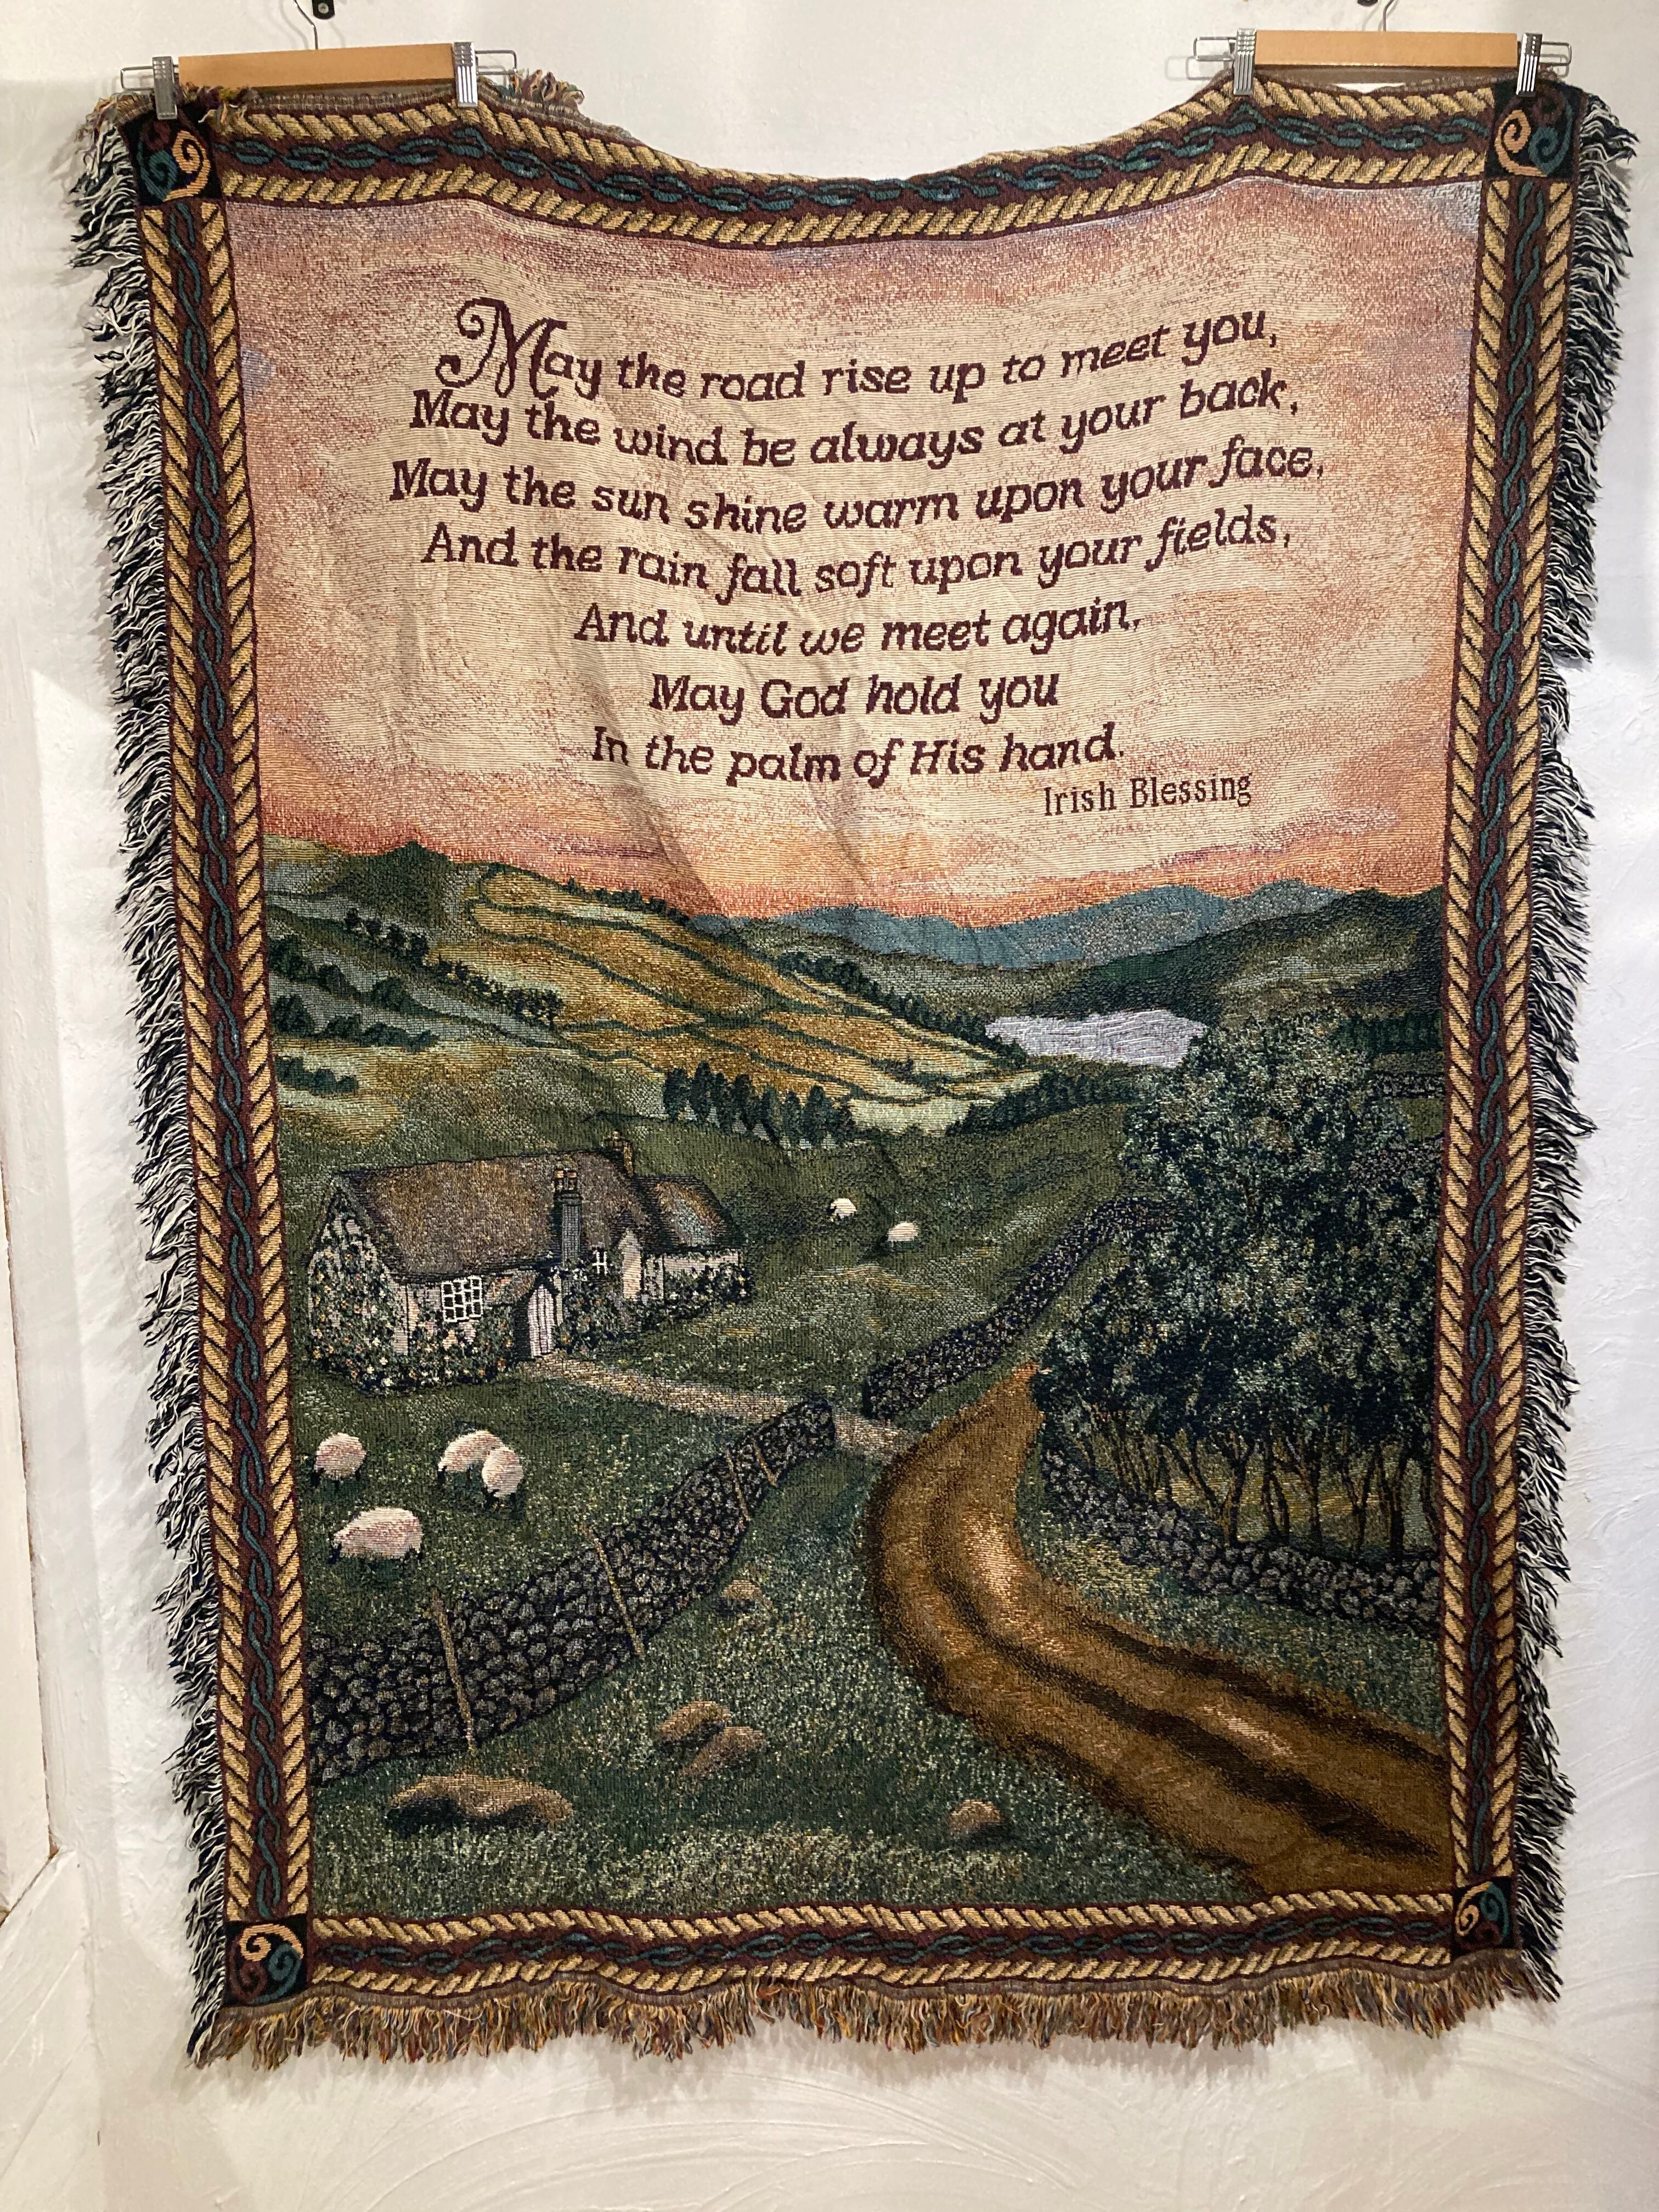 May the road rise up to meet you,
May the wind be always at your back,
May the sun shine warm upon your face,
And the rain fall soft upon your fields,
And until we meet again,
May God hold you
In the palm of His hand.
Irish Blessing